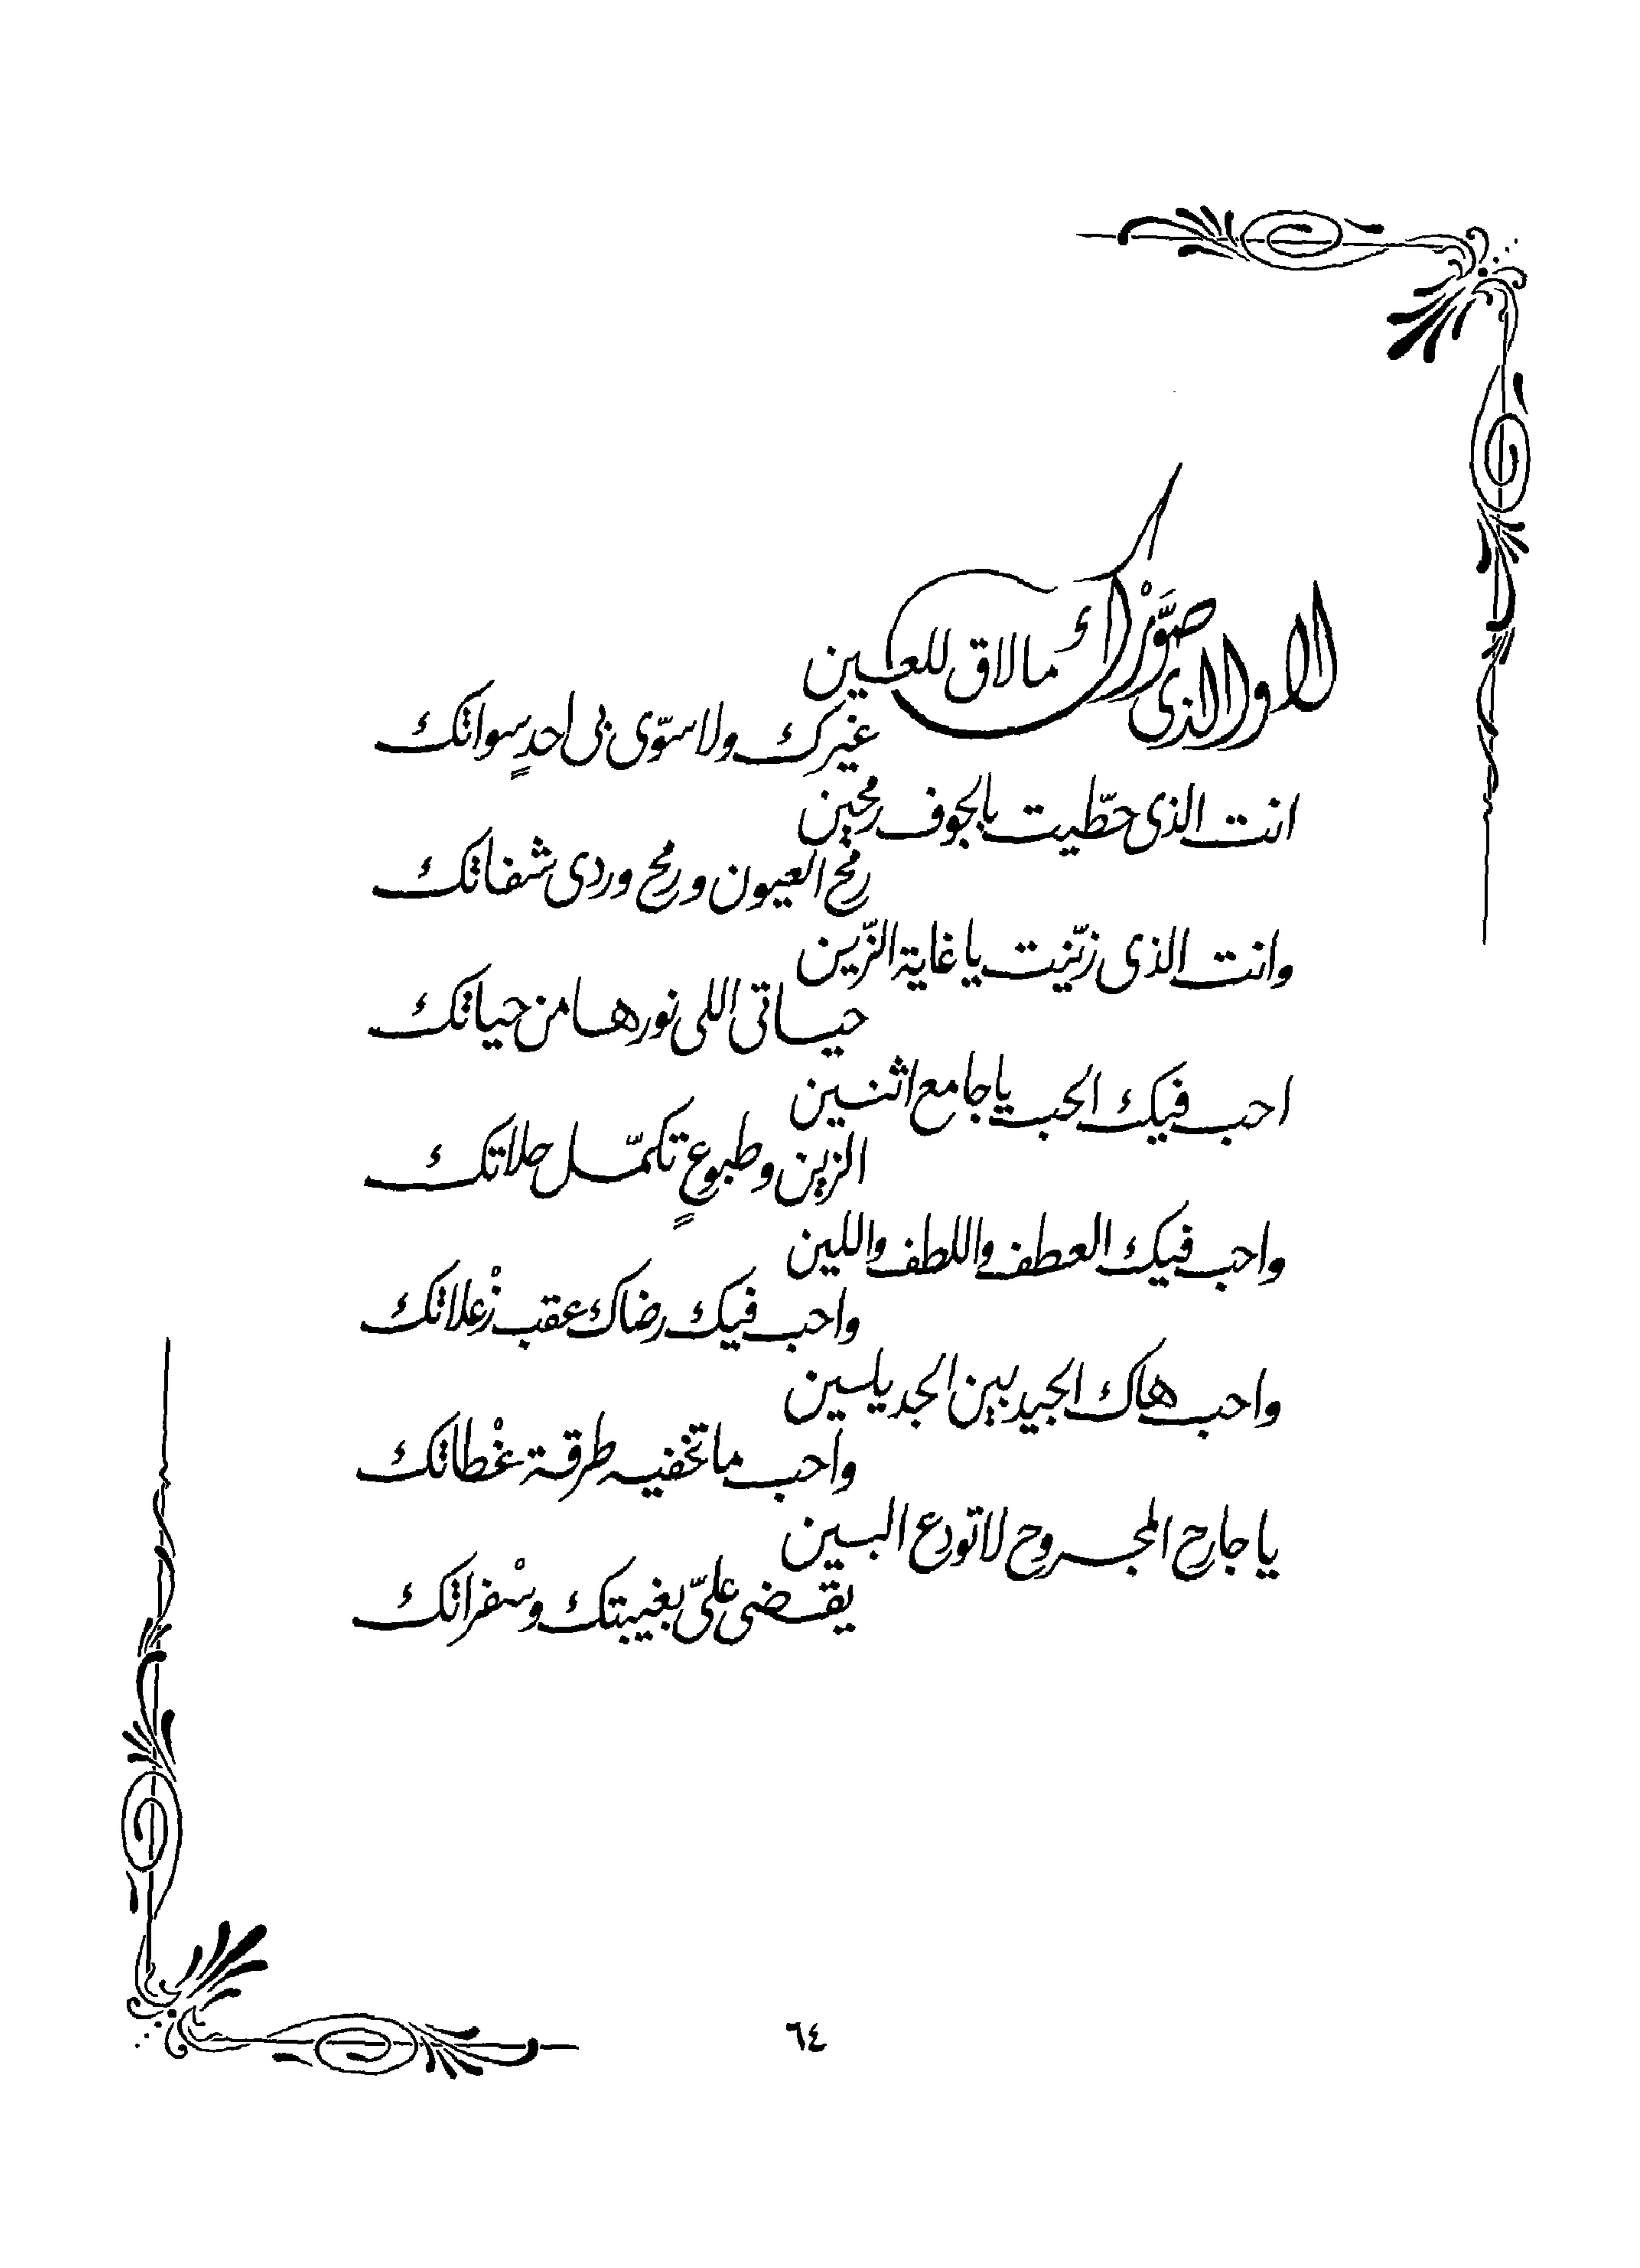 لا والذي صَوَّرْك مالاق للعين
غيرك ولا سوّى بي احدٍ سواتك
انت الذي حطّيت بالجوف رمحين
رمح العيون ورمح وردي شفاتك
وانت الذي زيّنت يا غاية الزّين
حياتي اللي نورها من حياتك
احب فيك الحب يا جامع اثنين
الزين وطبوعٍ تكمّل حلاتك
واحب فيك العطف واللطف واللين
واحب فيك رضاك عقب زْعلاتك
واحب هاك الجيد بين الجديلين
واحب ما تخفيه طرقة غْطاتك
يا جارح المجروح لا تودع البين
يقضي عليّ بغيبتك وسْفراتك
٦٤